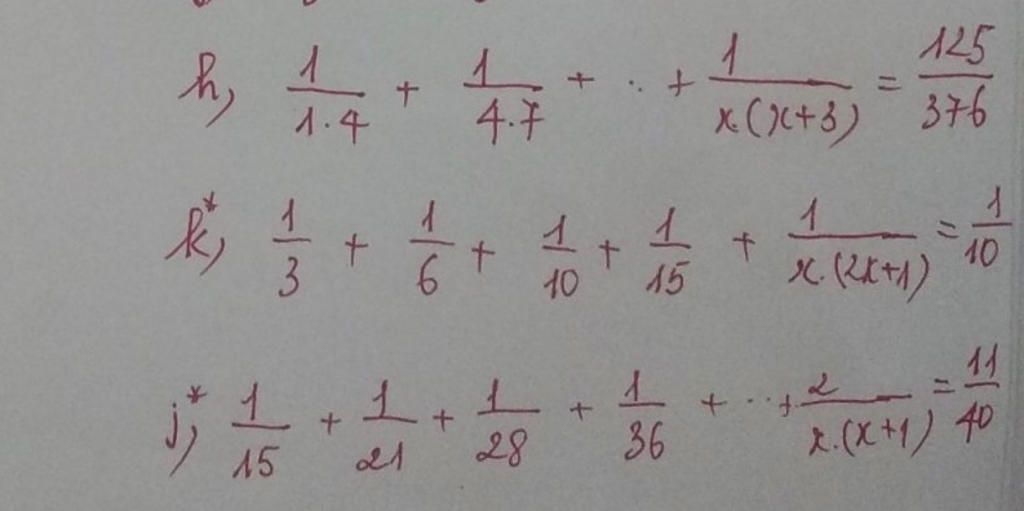 h, 1/1.4 + 1/4.7 + .. + 1/x.(x+3) = 125/376
k,* 1/3 + 1/6 + 1/10 + 1/15 + 1/x.(2x+1) = 1/10
j,* 1/15 + 1/21 + 1/28 + 1/36 + ... + 2/x.(x+1) = 11/40